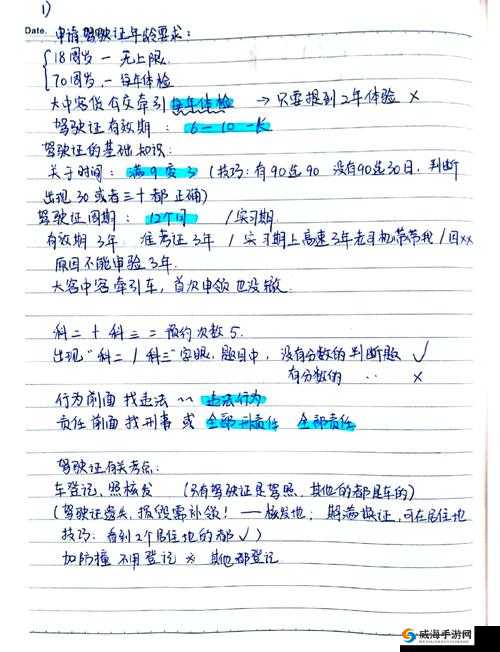 1)
Date.
申请驾驶证年龄要求：
18周岁 — 无上限.
70周岁 — 每年体检
大中客低公交牵引每年体检 → 只要提到2年体验 ×
驾驶证有效期： 6-10-长
驾驶证的基础知识：
关于时间： 满9变3 (技巧：有90选90 没有90选30日，判断
出现30或者三十都正确)
驾驶证周期： 12个月 / 实习期.
有效期3年. 准考证3年 / 实习期上高速3年老司机带带我 / 因××
原因不能申验3年.
大客中客牵引车，首次申领也没辙.
科二+科三 = 预约次数5.
出现“科二 / 科三”字眼，题目中，没有分数的判断题 √
有分数的 ×
行为前面找违法 ~~ 违法行为
责任前面找刑事 或 全部刑责任 全部责任
驾驶证有关考点:
车登记、照核发 (只有驾驶证是驾照、其他的都是车的)
(驾驶证遗失、损毁需补领！— 核发地； 期满换证，可在居住地
技巧：看到2个居住地的都√)
加防撞 不用登记 × 其他都登记.
威海手游网